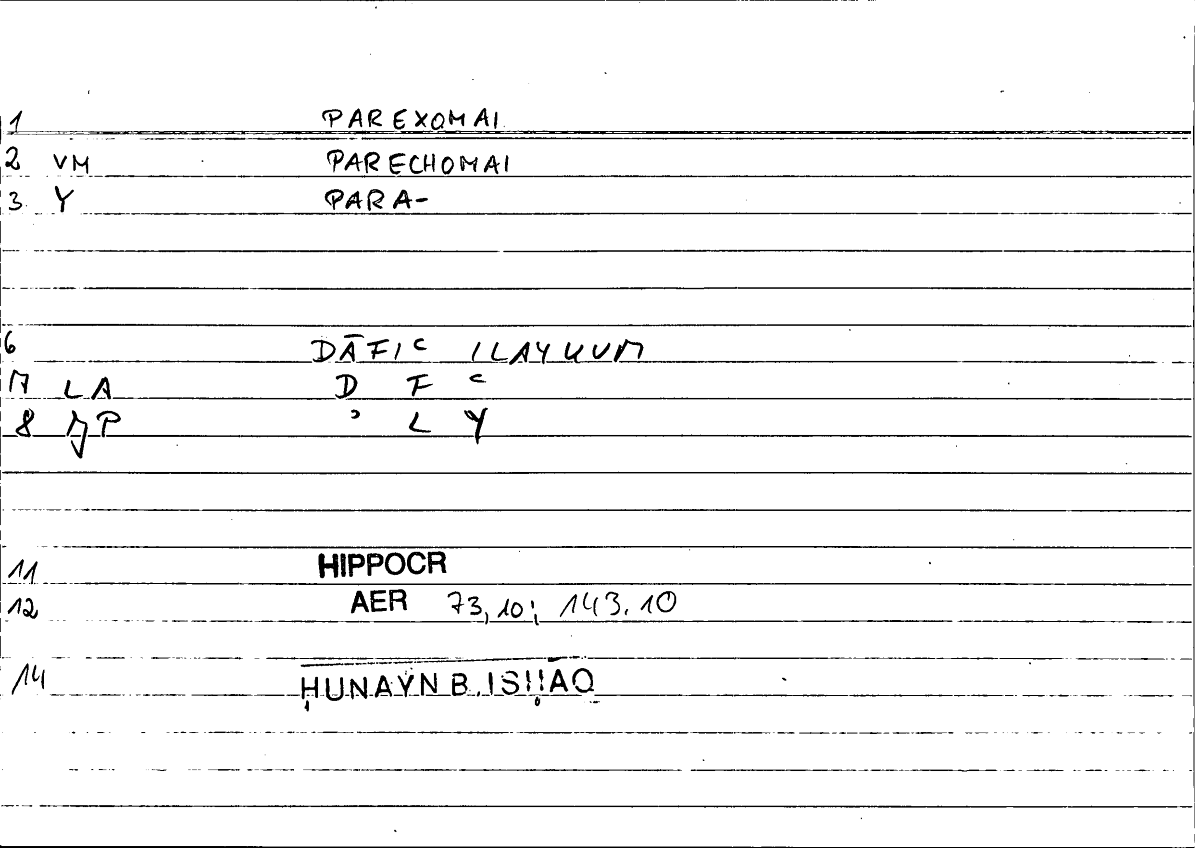 1 PAREXOMAI
2 VM PARECHOMAI
3 Y PARA-
6 DĀFIʿ ILAYHUM
7 LA D F ʿ
8 JP ʾ L Y
11 HIPPOCR
12 AER 73,10; 143.10
14 ḤUNAYN B. ISḤĀQ